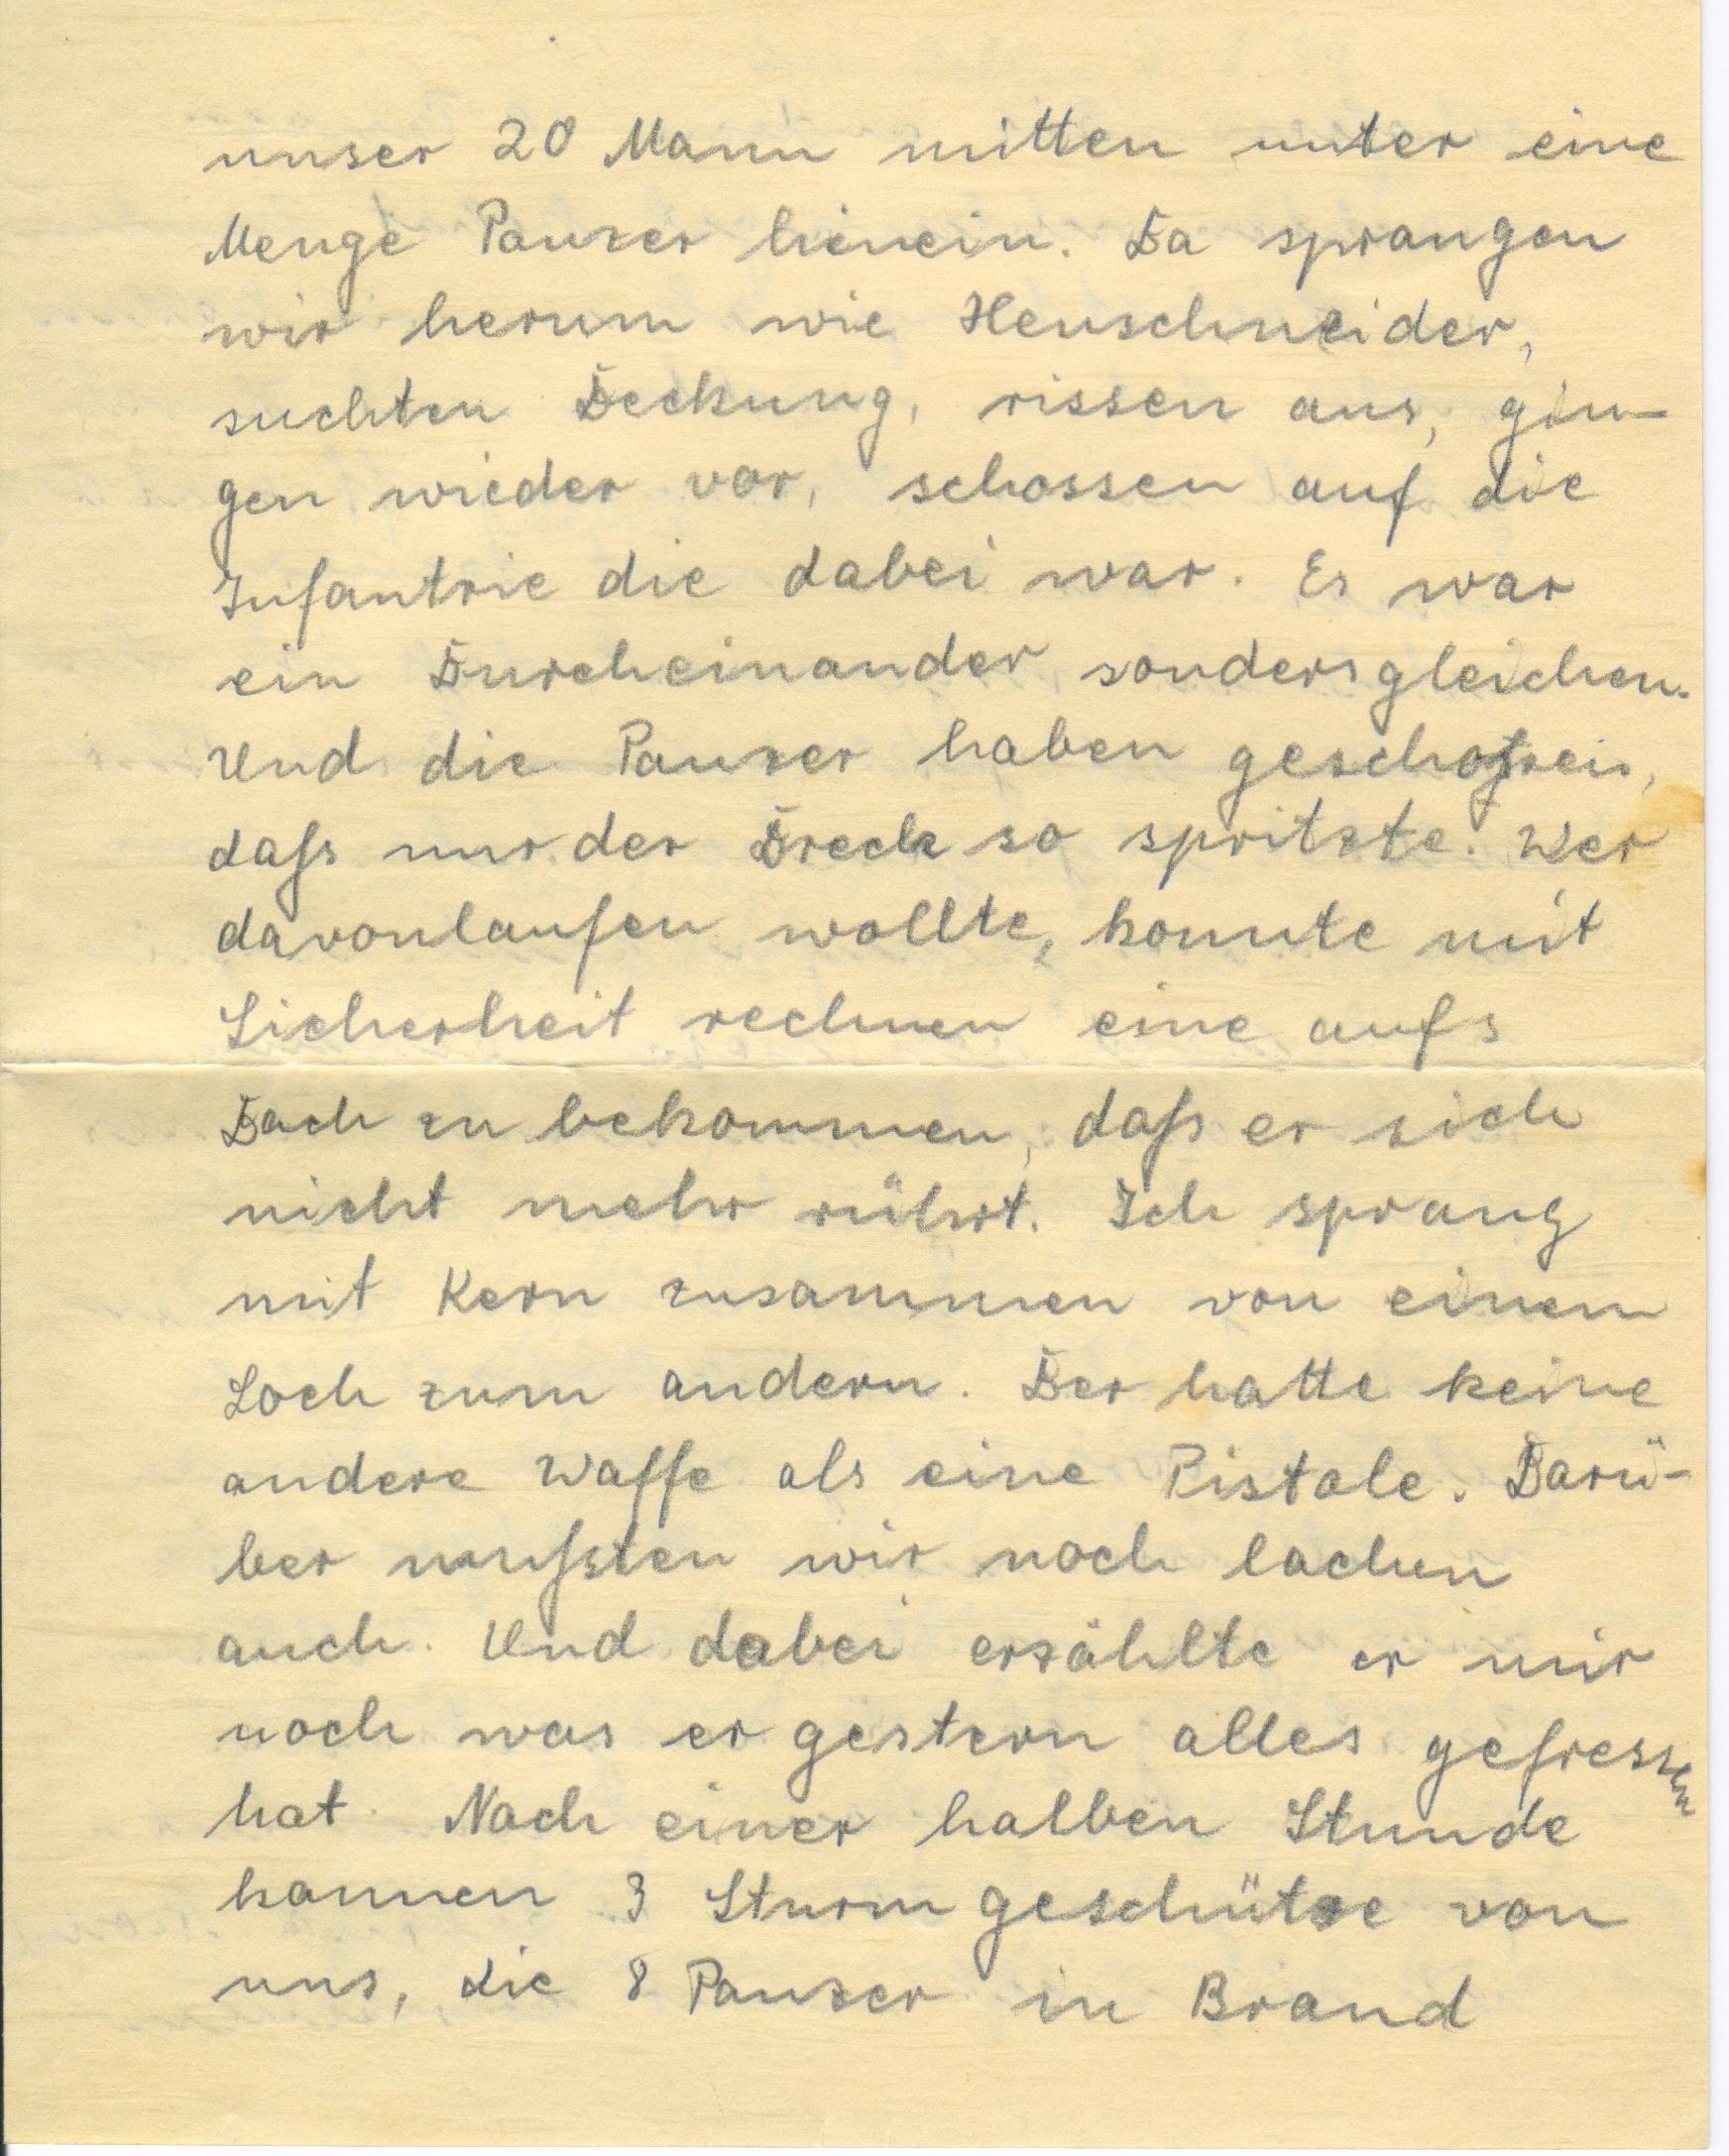 unser 20 Mann mitten unter eine
Menge Panzer hienein. Da sprangen
wir herum wie Heuschneider,
suchten Deckung, rissen aus, gin-
gen wieder vor, schossen auf die
Infantrie die dabei war. Es war
ein Durcheinander sondersgleichen.
Und die Panzer haben geschossen,
daß nur der Dreck so spritzte. Wer
davonlaufen wollte, konnte mit
Sicherheit rechnen eine aufs
Dach zu bekommen, daß er sich
nicht mehr rührt. Ich sprang
mit Kern zusammen von einem
Loch zum andern. Der hatte keine
andere Waffe als eine Pistole. Darü-
ber mußten wir noch lachen
auch. Und dabei erzählte er mir
noch was er gestern alles gefressen
hat. Nach einer halben Stunde
kammen 3 Sturmgeschütze von
uns, die 8 Panzer in Brand